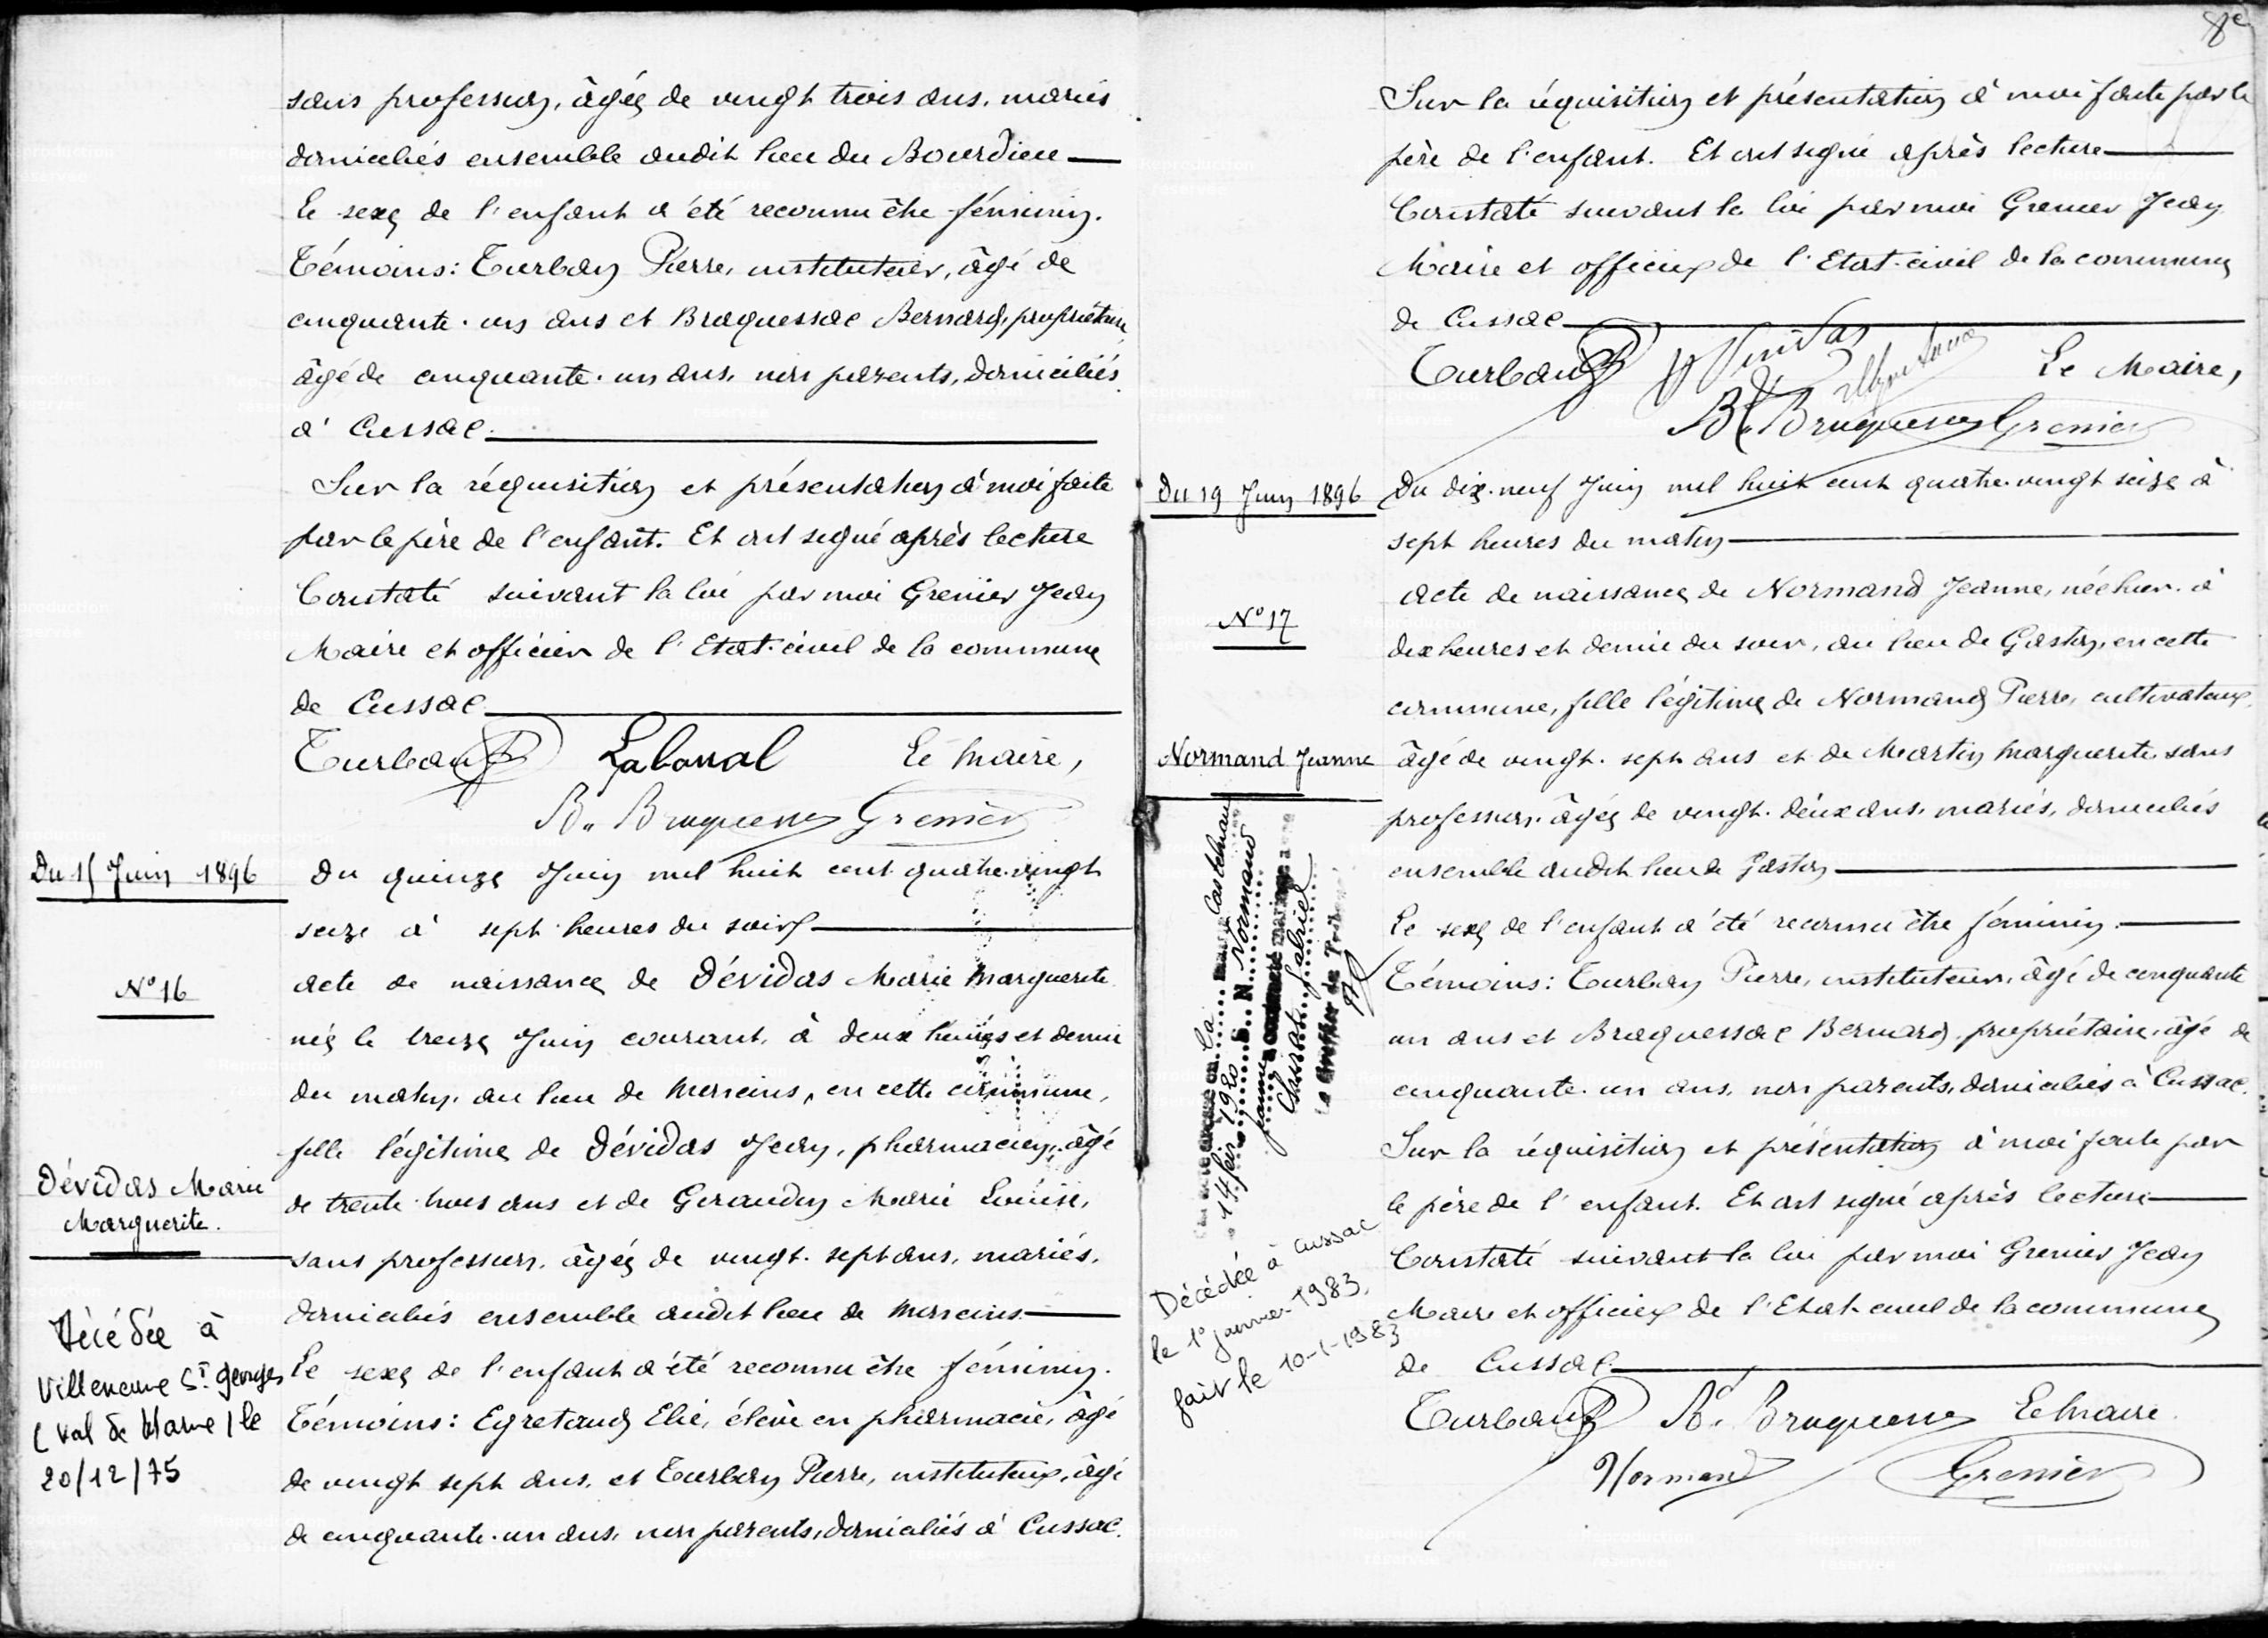 sans profession, âgée de vingt trois ans, mariés
domiciliés ensemble audit lieu du Bourdieu
Le sexe de l'enfant a été reconnu être féminin.
Témoins: Turban Pierre, instituteur, âgé de
cinquante-un ans et Braquessac Bernard, propriétaire,
âgé de cinquante-un ans, non parents, domiciliés
à Cussac.
Sur la réquisition et présentation à moi faite
par le père de l'enfant. Et ont signé après lecture
Constaté suivant la loi par moi Grenier Jean
Maire et officier de l'Etat-civil de la commune
de Cussac
Turban Le Maire,
B. Grenier
Du 15 Juin 1896
Du quinze Juin mil huit cent quatre-vingt
seize à sept heures du soir
N° 16
acte de naissance de Dévidas Marie Marguerite
née le treize Juin courant, à deux heures et demie
du matin, au lieu de, en cette commune,
fille légitime de Dévidas Jean, pharmacien, âgé
Dévidas Marie
Marguerite.
de trente-trois ans et de Geraudin Marie Louise,
sans profession, âgée de vingt-sept ans, mariés,
domiciliés ensemble audit lieu de
Décédée à
Villeneuve St. Georges
(Val de Marne) le
20/12/75
Le sexe de l'enfant a été reconnu être féminin.
Témoins: Egretaud Elie, élève en pharmacie, âgé
de vingt sept ans, et Turban Pierre, instituteur, âgé
de cinquante-un ans, non parents, domiciliés à Cussac.
8e
Sur la réquisition et présentation à moi faite par le
père de l'enfant. Et ont signé après lecture
Constaté suivant la loi par moi Grenier Jean
Maire et officier de l'Etat-civil de la commune
de Cussac
Turban Le Maire,
B. Grenier
Du 19 Juin 1896
Du dix-neuf Juin mil huit cent quatre-vingt seize à
sept heures du matin
N° 17
acte de naissance de Normand Jeanne, née hier à
dix heures et demie du soir, au lieu de Gaston, en cette
commune, fille légitime de Normand Pierre, cultivateur,
Normand Jeanne
âgé de vingt-sept ans et de Martin Marguerite sans
profession, âgée de vingt-deux ans, mariés, domiciliés
ensemble audit lieu de Gaston
Le sexe de l'enfant a été reconnu être féminin.
Témoins: Turban Pierre, instituteur, âgé de cinquante
un ans et Braquessac Bernard, propriétaire, âgé de
cinquante-un ans, non parents, domiciliés à Cussac.
Sur la réquisition et présentation à moi faite par
le père de l'enfant. Et ont signé après lecture
Constaté suivant la loi par moi Grenier Jean
Maire et officier de l'Etat-civil de la commune
de Cussac
Castelnau
14 1920 Normand
a contracté mariage avec
Gabriel
Le Greffier du
Décédée à Cussac
le 1° janvier 1983,
fait le 10-1-1983
Turban B. Le Maire.
Normand Grenier